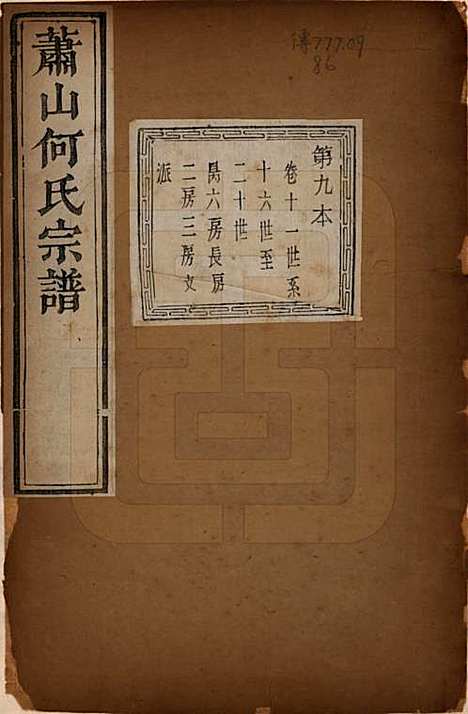 傳777.09
86
蕭山何氏宗譜
第九本
卷十一世系
十六世至
二十世
昺六房長房
二房三房文
派